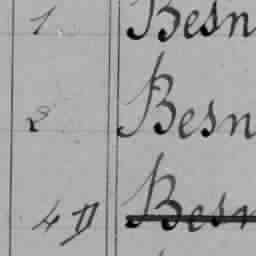 1 Besn
2 Besn
4 D Besn